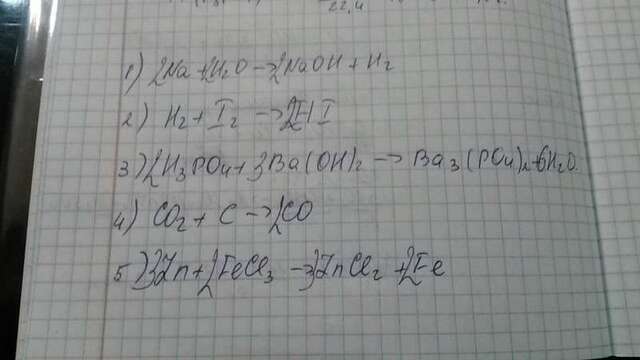 22,4
1) 2Na+2H2O→2NaOH+H2
2) H2+I2→2HI
3) 2H3PO4+3Ba(OH)2→Ba3(PO4)2+6H2O
4) CO2+C→2CO
5) 3Zn+2FeCl3→3ZnCl2+2Fe